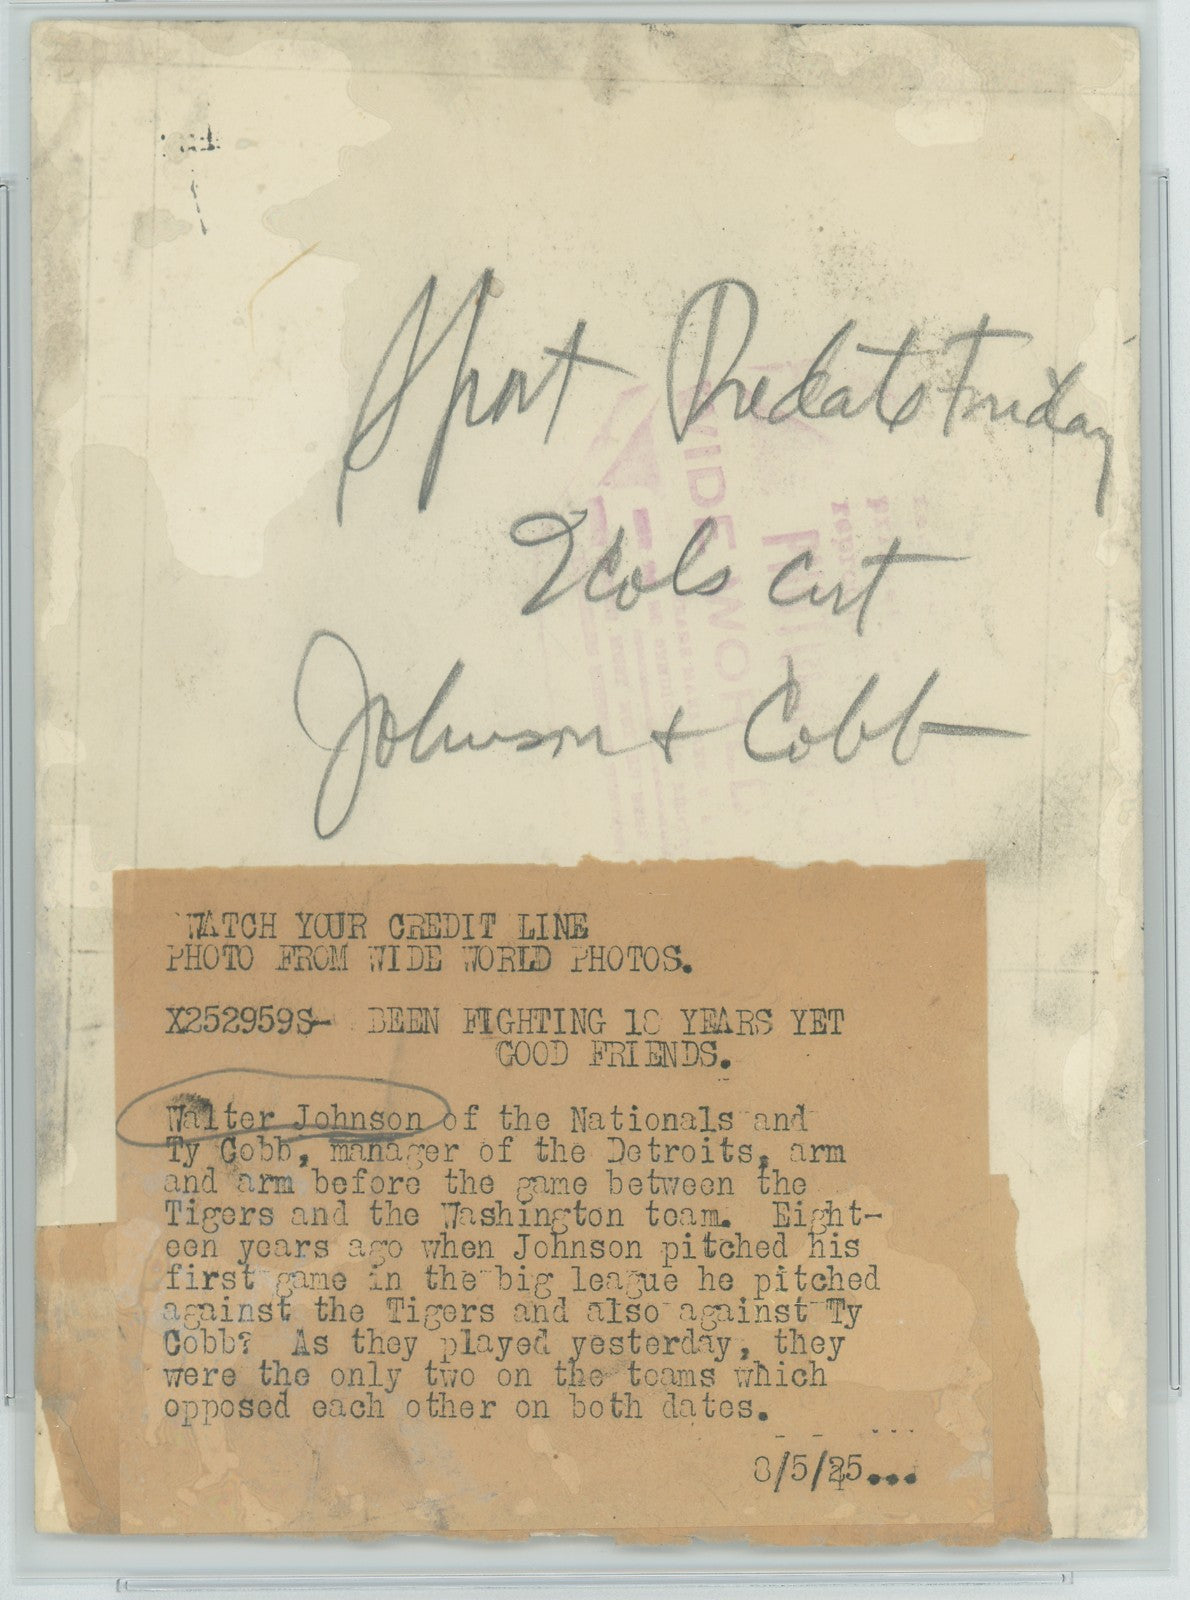 Sport Predate Friday
2 Cols Cut
Johnson + Cobb
WIDE WORLD
WATCH YOUR CREDIT LINE
PHOTO FROM WIDE WORLD PHOTOS.
X252959S- BEEN FIGHTING 18 YEARS YET
GOOD FRIENDS.
Walter Johnson of the Nationals and
Ty Cobb, manager of the Detroits, arm
and arm before the game between the
Tigers and the Washington team. Eight-
een years ago when Johnson pitched his
first game in the big league he pitched
against the Tigers and also against Ty
Cobb? As they played yesterday, they
were the only two on the teams which
opposed each other on both dates.
8/5/25...